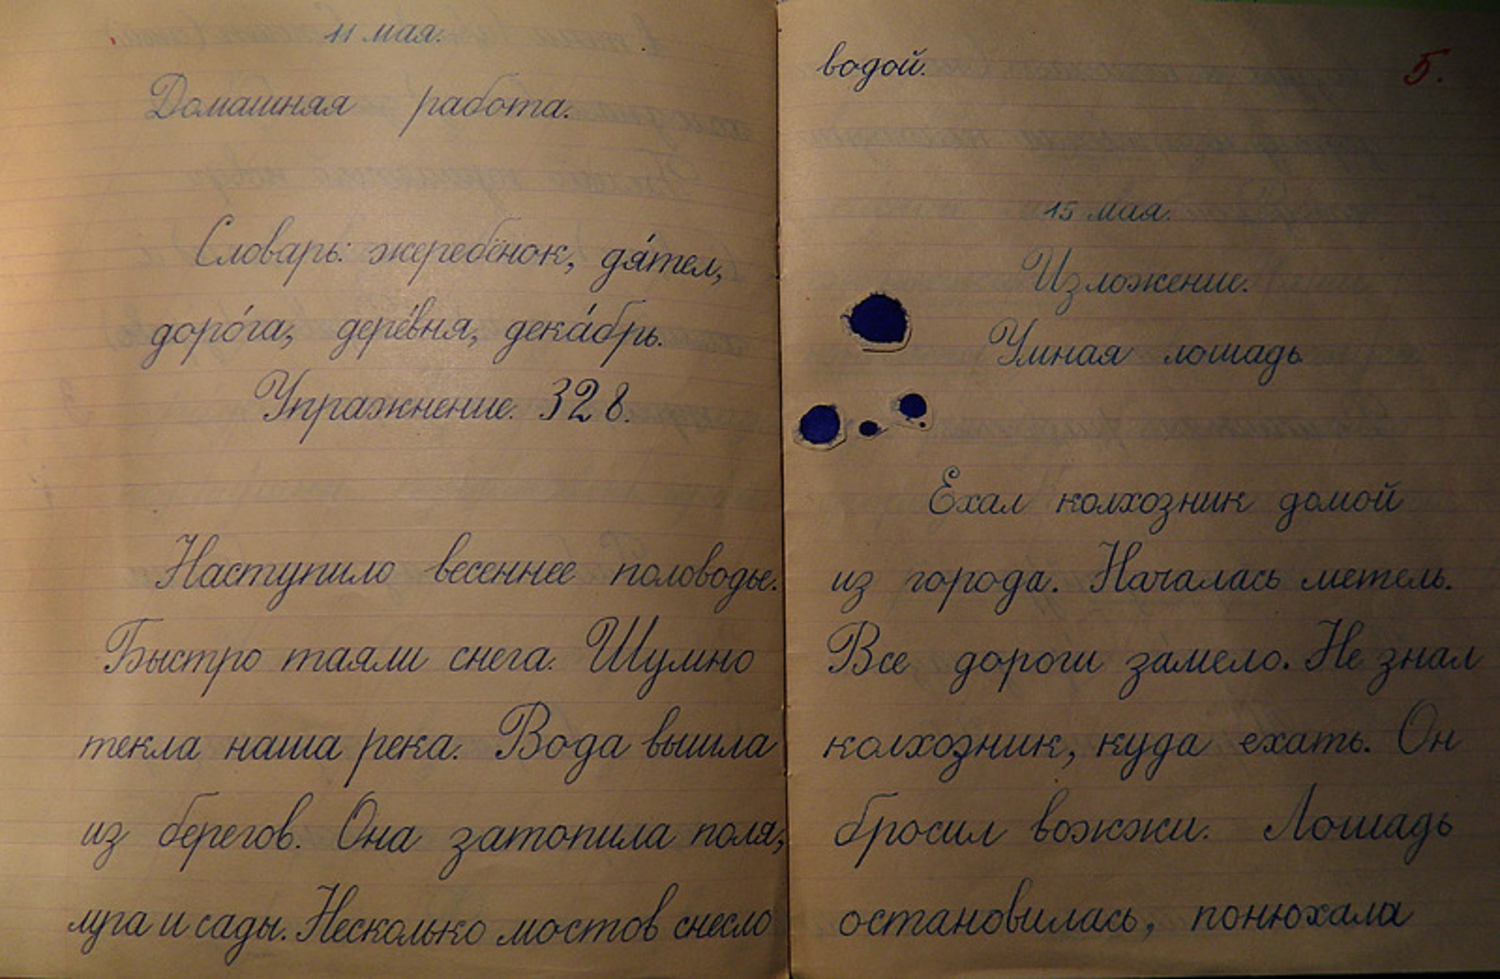 11 мая.
Домашняя работа.
Словарь: жеребёнок, дя́тел,
доро́га, дере́вня, дека́брь.
Упражнение. 328.
Наступило весеннее половодье.
Быстро таяли снега. Шумно
текла наша река. Вода вышла
из берегов. Она затопила поля,
луга и сады. Несколько мостов снесло
водой.
5.
15 мая.
Изложение.
Умная лошадь
Ехал колхозник домой
из города. Началась метель.
Все дороги замело. Не знал
колхозник, куда ехать. Он
бросил вожжи. Лошадь
остановилась, понюхала